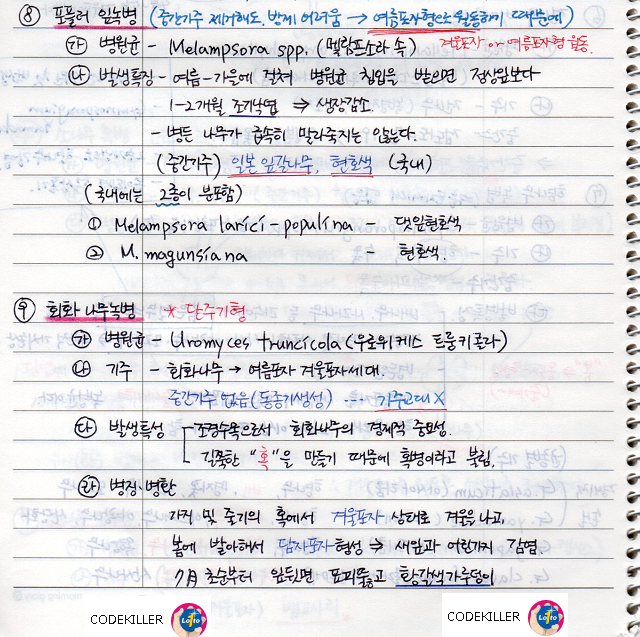 ⑧ 포플러 잎녹병 (중간기주 제거해도, 방제 어려움 → 여름포자형으로 월동하기 때문에)
㉮ 병원균 - Melampsora spp. (멜람프소라 속) 겨울포자 or 여름포자형 월동.
㉯ 발생특징 - 여름-가을에 걸쳐 병원균 침입을 받으면 정상잎보다
1-2개월 조기낙엽 ⇒ 생장감소.
- 병든 나무가 급속히 말라죽지는 않는다.
(중간기주) 일본잎갈나무, 현호색 (국내)
(국내에는 2종이 분포함)
① Melampsora larici-populina - 댓잎현호색
② M. magunsiana - 현호색.
⑨ 회화나무녹병 * 단주기형
㉮ 병원균 - Uromyces truncicola (우로위케스 트룬키콜라)
㉯ 기주 - 회화나무 → 여름포자 겨울포자세대
중간기주 없음 (동종기생성) --- 기주교대 X
㉰ 발생특성 - 조경수목으로서 회화나무의 경제적 중요성.
길쭉한 "혹"을 만들기 때문에 혹병이라고 불림,
㉱ 병징·병환
가지 및 줄기의 혹에서 겨울포자 상태로 겨울을 나고,
봄에 발아해서 담자포자 형성 ⇒ 새잎과 어린가지 감염
7月 초순부터 잎뒷면 표피뚫고 황갈색가루덩이
CODEKILLER Lotto CODEKILLER Lotto